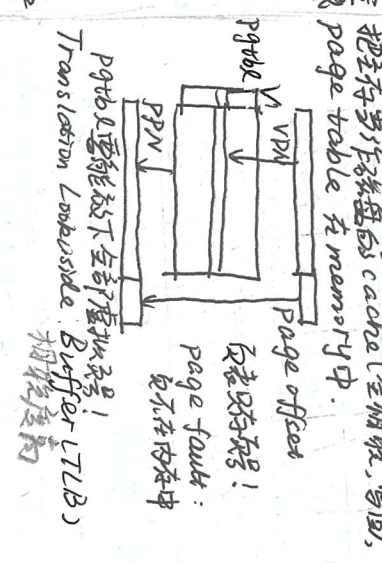 把主存当作磁盘的cache(全相联,写回,
page table 在 memory中.
VPN
page offset
pgtbl V
页表只存页号!
PPN
page fault:
页不在内存中
pgtbl要能放下全部虚拟页号!
Translation Lookaside Buffer (TLB)